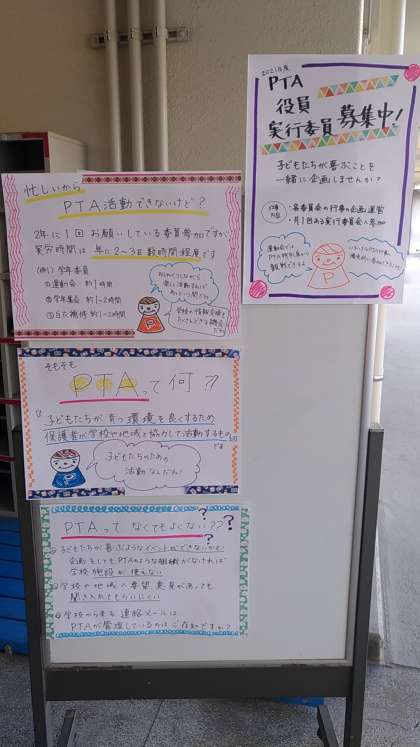 忙しいから
PTA活動できないけど？
2年に1回 お願いしている委員参加ですが
実労時間は 年に2～3日数時間程度です
(例) 学年委員
①運動会 約1時間
②学年集会 約1～2時間
楽しい活動すれば
学校の情報交換も
たくさんできる機会
そもそも
PTAって何？
子どもたちが育つ環境を良くするため
保護者が学校や地域と協力して活動するもの
です
子どもたちのための
活動なんだね！
PTAって なくてもよくない??
子どもたちが喜ぶようなイベントができないかも
企画をしてもPTAのような組織がなければ
学校施設が使えない
学校や地域へ要望 意見があっても
聞き入れてもらいにくい
学校から来る 連絡メールは
PTAが管理しているのはご存知ですか？
2021年度
PTA
役員
実行委員 募集中！
子どもたちが喜ぶことを
一緒に企画しませんか？
・各委員会の行事の企画運営
・月1回ある実行委員会へ参加
運動会では
観戦できるよ